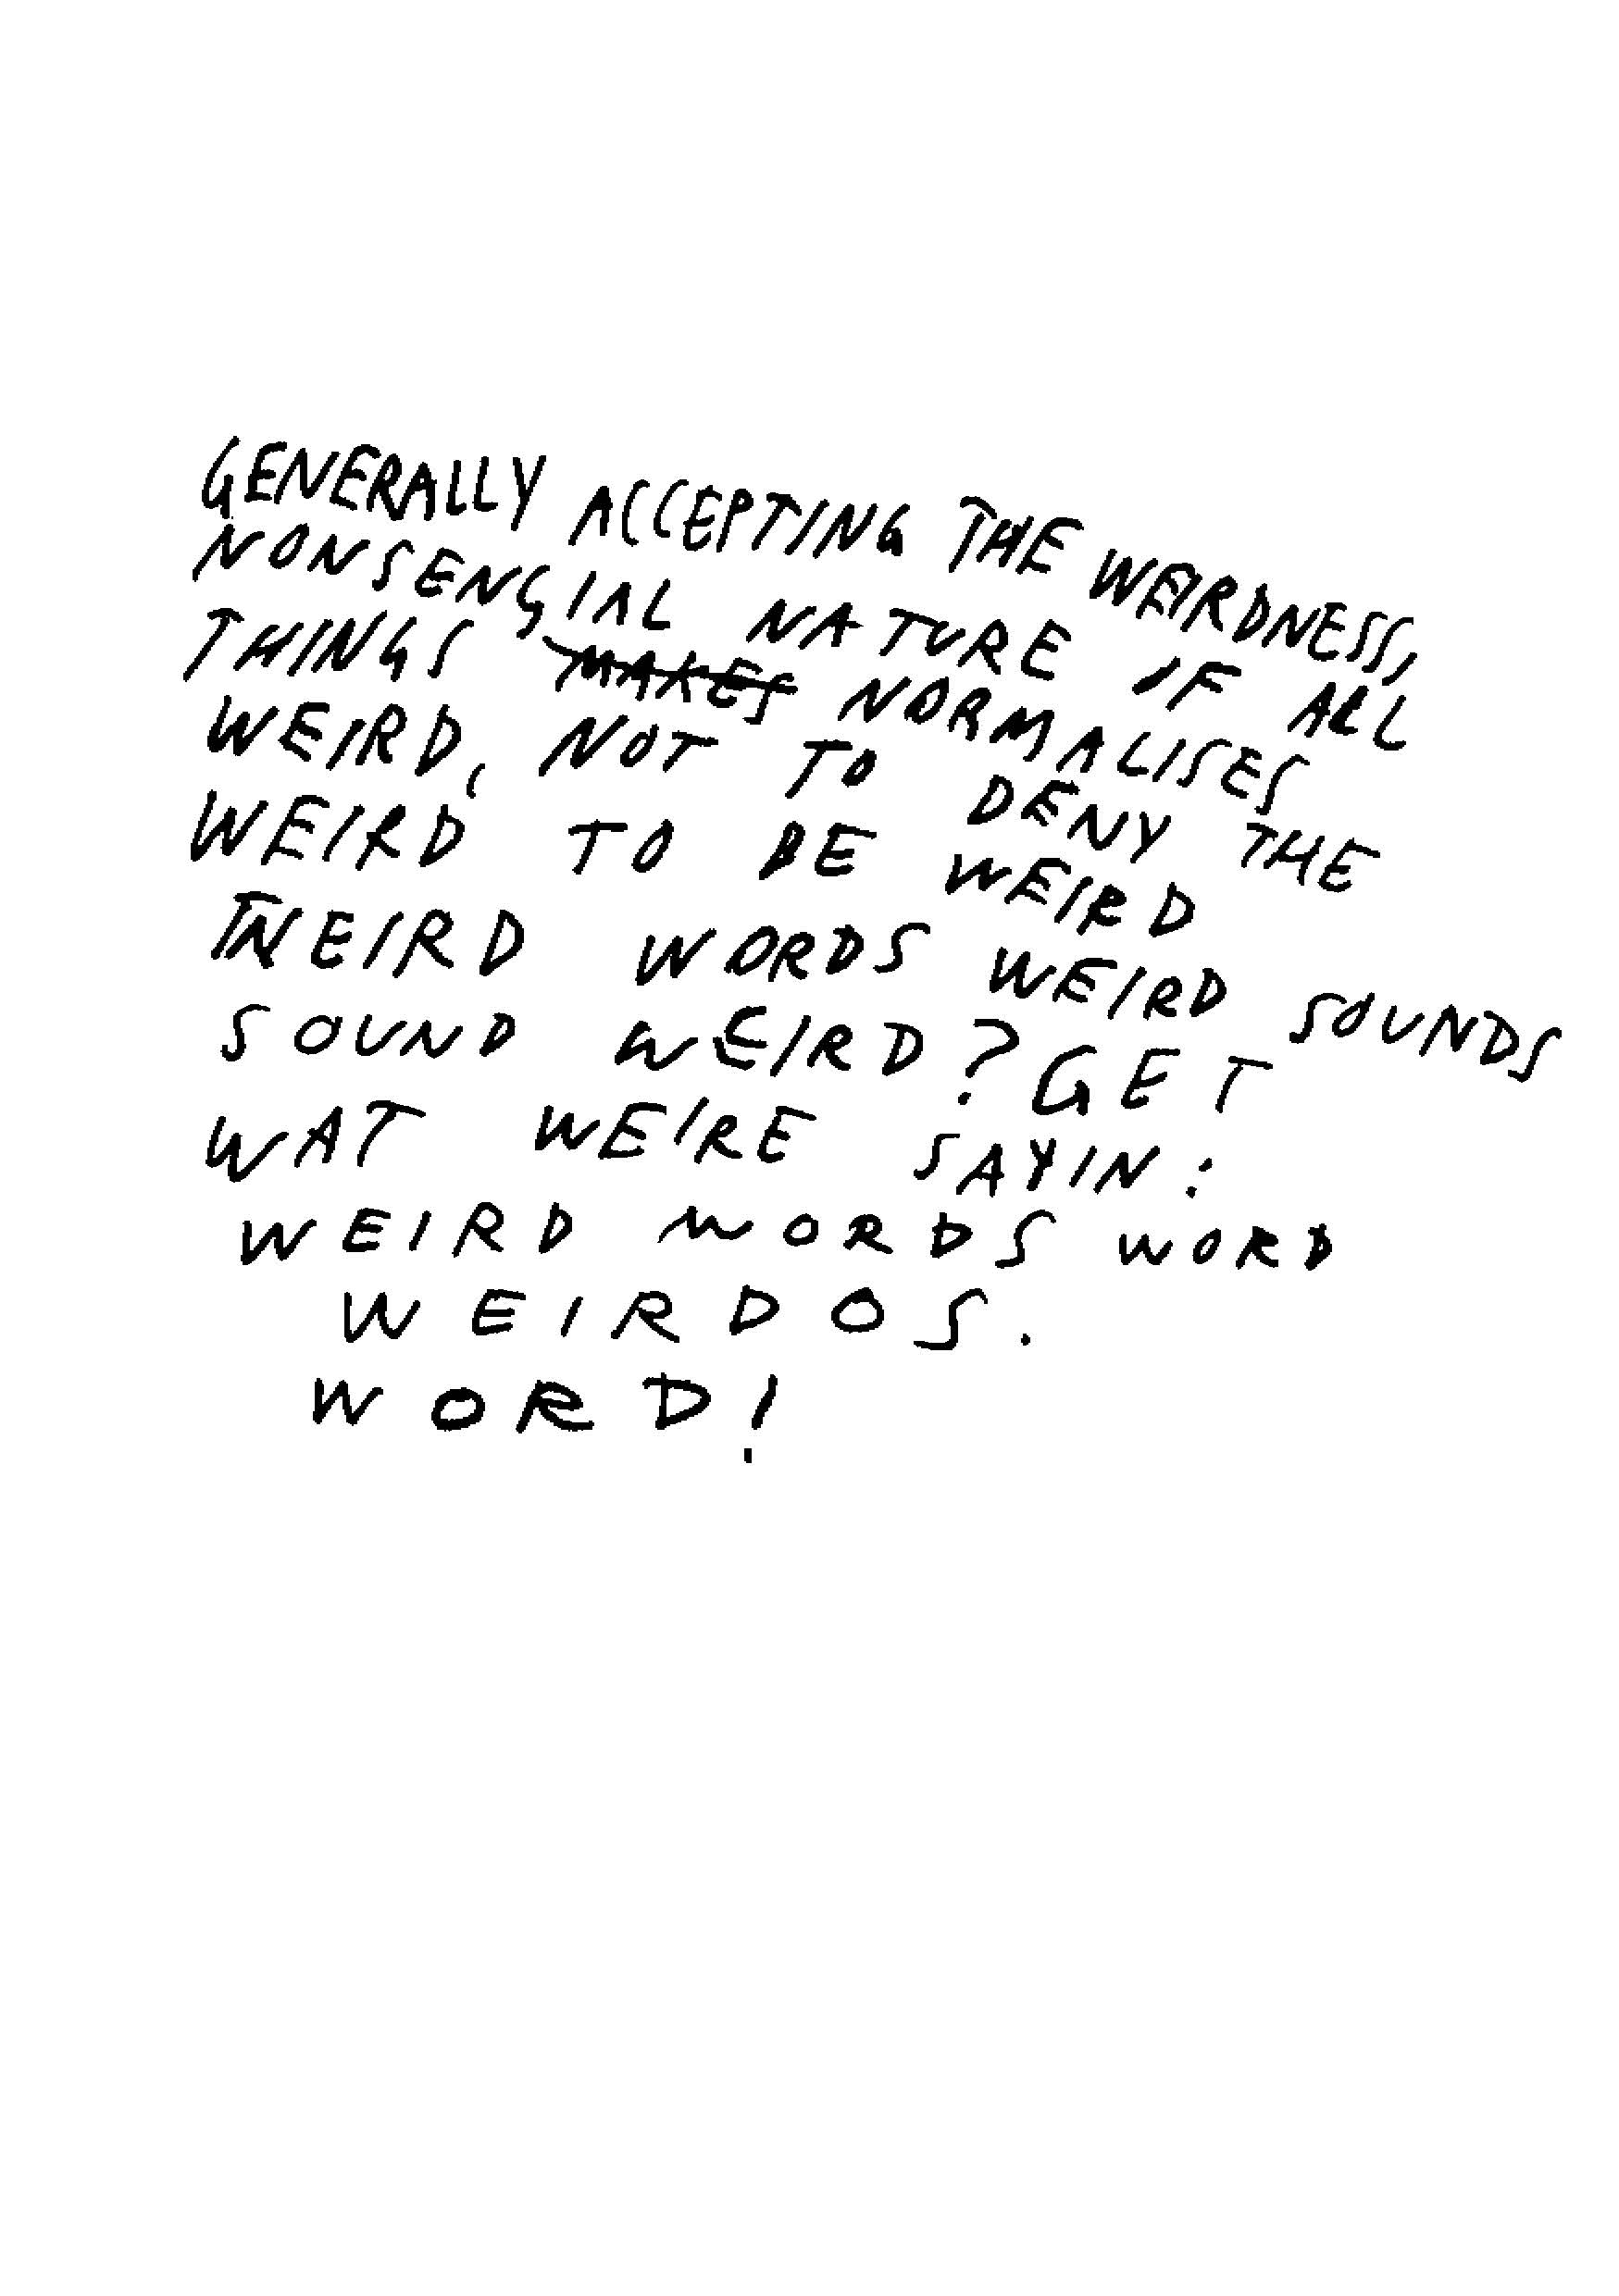 GENERALLY ACCEPTING THE WEIRDNESS,
NONSENCIAL NATURE IF ALL
THINGS MAKES NORMALISES
WEIRD, NOT TO DENY THE
WEIRD TO BE WEIRD
WEIRD WORDS WEIRD SOUNDS
SOUND WEIRD? GET
WAT WEIRE SAYIN:
WEIRD WORDS WORD
WEIRDOS.
WORD!